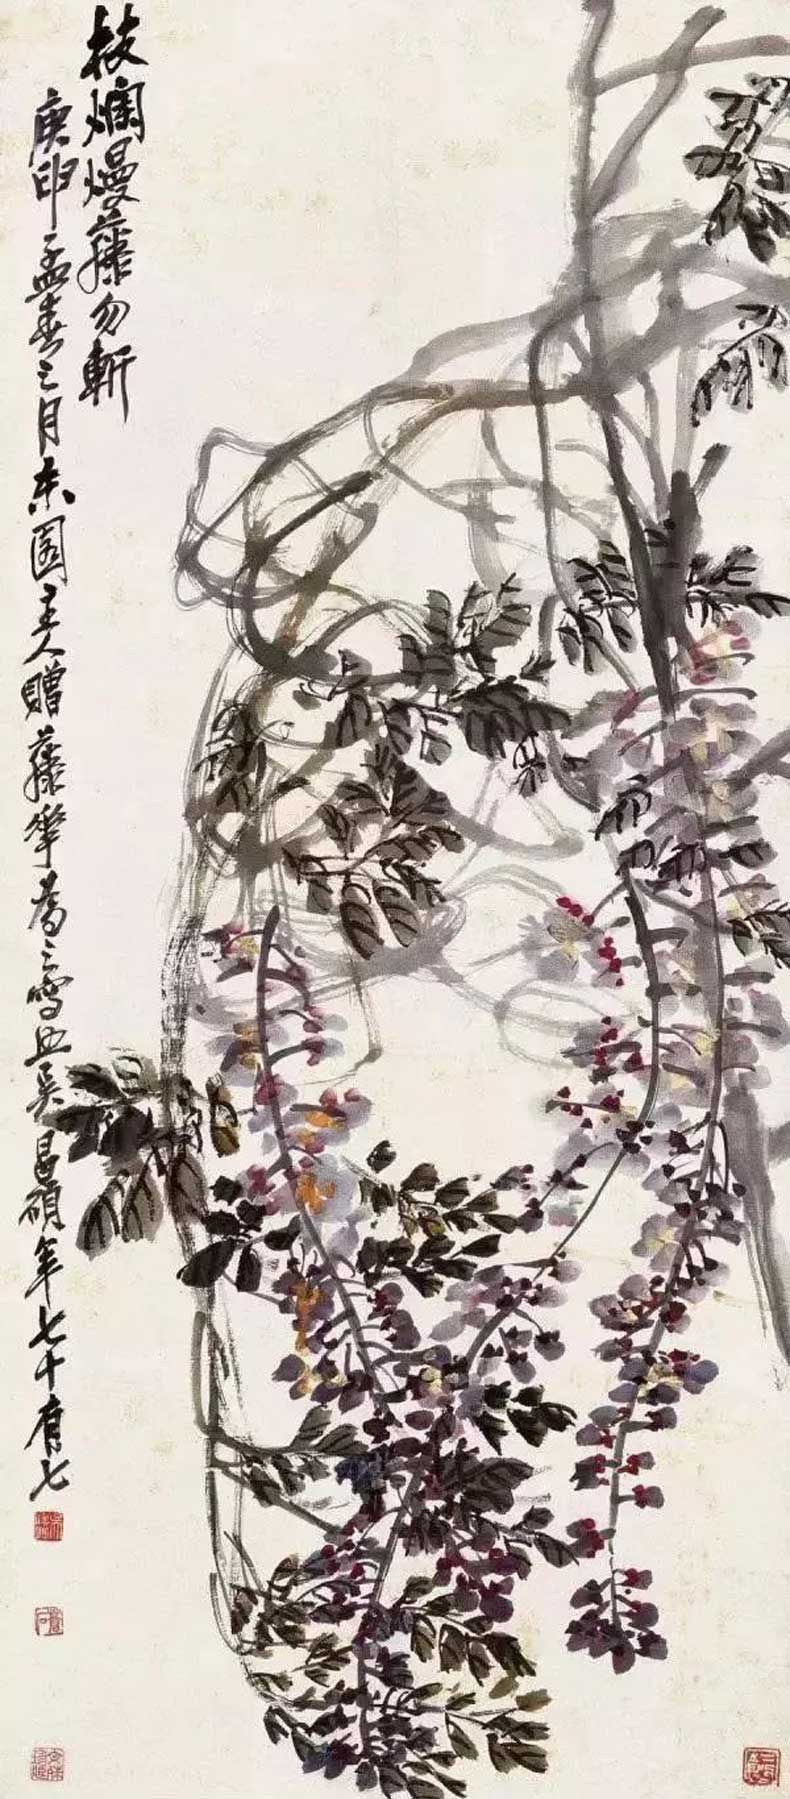 枝爛熳藤勿斬
庚申孟春之月東園主人贈藤華為之寫照吳昌碩年七十有七